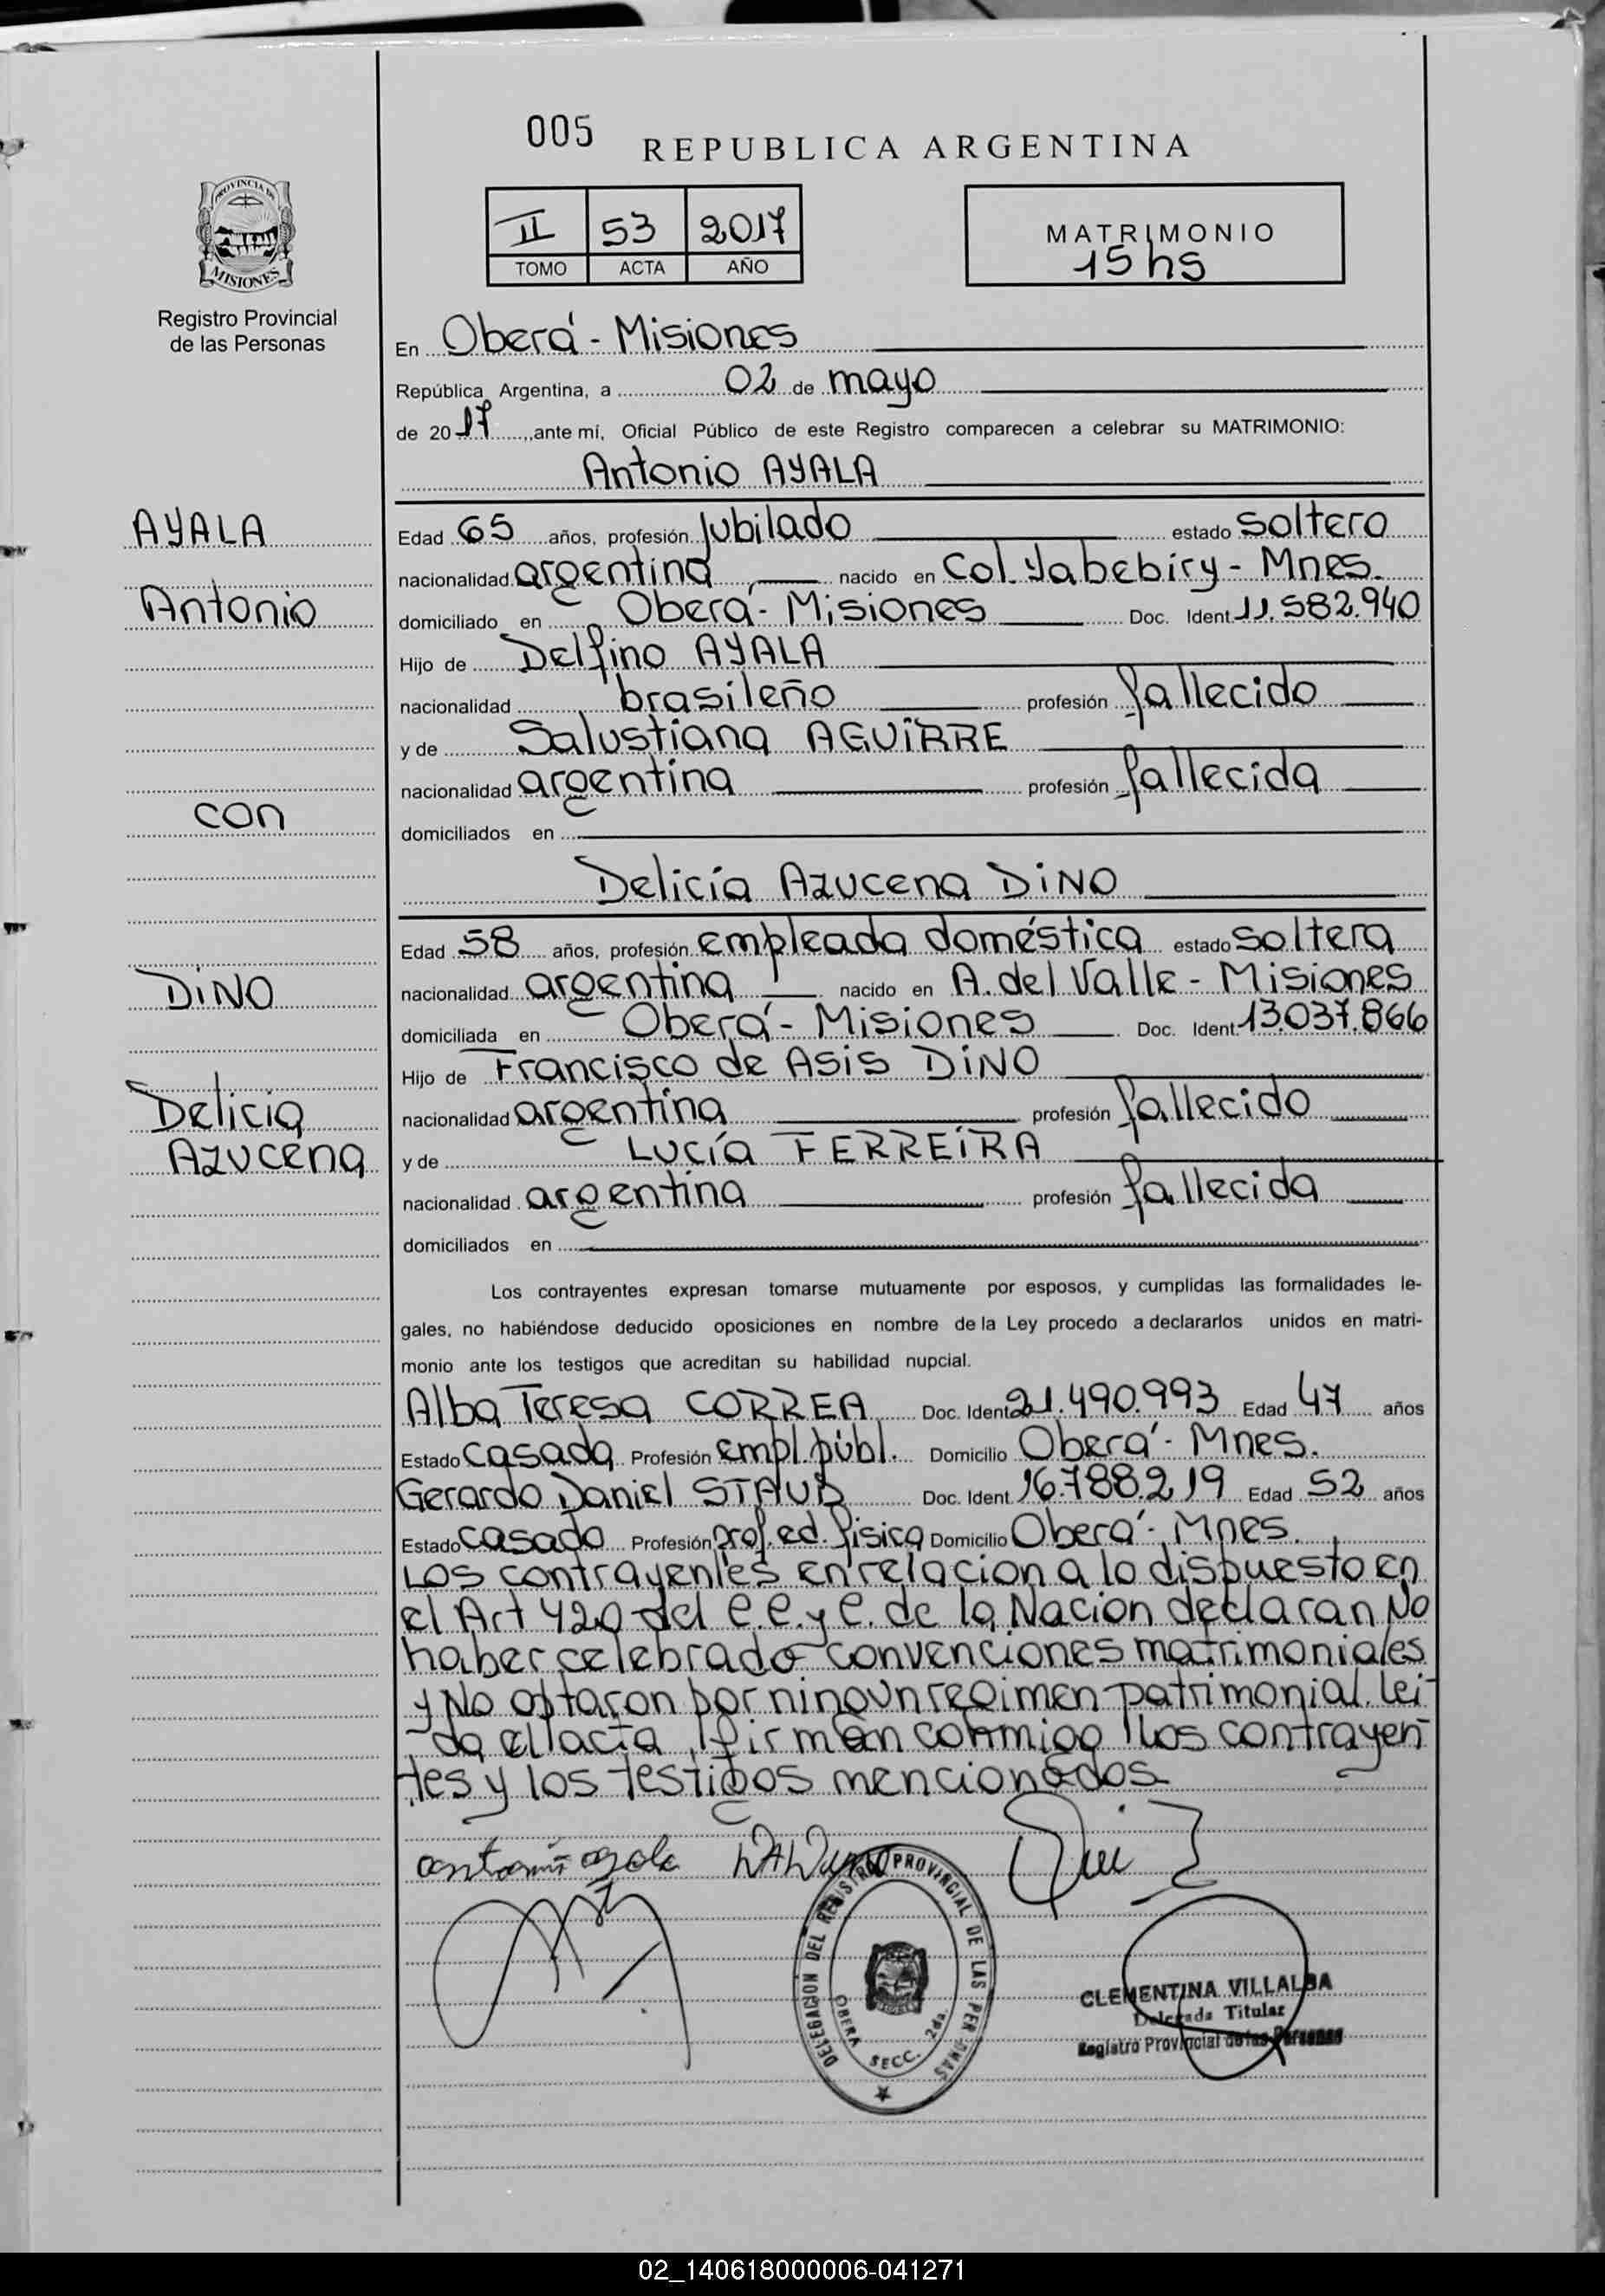 005
REPUBLICA ARGENTINA
PROVINCIA DE
MISIONES
Registro Provincial
de las Personas
II 53 2017
TOMO ACTA AÑO
MATRIMONIO
15 hs
En Oberá - Misiones
República Argentina, a 02 de mayo
de 2017, ante mí, Oficial Público de este Registro comparecen a celebrar su MATRIMONIO:
Antonio AYALA
AYALA
Antonio
con
DINO
Delicia
Azucena
Edad 65 años, profesión Jubilado estado soltero
nacionalidad argentina nacido en Col. Yabebiry - Mnes.
domiciliado en Oberá - Misiones Doc. Ident. 11.582.940
Hijo de Delfino AYALA
nacionalidad brasileño profesión fallecido
y de Salustiana AGUIRRE
nacionalidad argentina profesión fallecida
domiciliados en
Delicia Azucena DINO
Edad 58 años, profesión empleada doméstica estado soltera
nacionalidad argentina nacido en A. del Valle - Misiones
domiciliada en Oberá - Misiones Doc. Ident. 13.037.866
Hijo de Francisco de Asis DINO
nacionalidad argentina profesión fallecido
y de Lucía FERREIRA
nacionalidad argentina profesión fallecida
domiciliados en
Los contrayentes expresan tomarse mutuamente por esposos, y cumplidas las formalidades le-
gales, no habiéndose deducido oposiciones en nombre de la Ley procedo a declararlos unidos en matri-
monio ante los testigos que acreditan su habilidad nupcial.
Alba Teresa CORREA Doc. Ident. 21.490.993 Edad 47 años
Estado casada Profesión empl. públ. Domicilio Oberá - Mnes.
Gerardo Daniel STAUB Doc. Ident. 16.788.219 Edad 52 años
Estado casado Profesión prof. ed. física Domicilio Oberá - Mnes.
Los contrayentes en relacion a lo dispuesto en
el Art 420 del C.C. y C. de la Nacion declaran No
haber celebrado convenciones matrimoniales
y No optaron por ningun regimen patrimonial. Lei-
da el acta, firman conmigo los contrayen-
tes y los testigos mencionados
antonio ayala
DELEGACION DEL REGISTRO PROVINCIAL DE LAS PERSONAS
OBERA SECC. 2da.
CLEMENTINA VILLALBA
Delegada Titular
Registro Provincial de las Personas
02_140618000006-041271